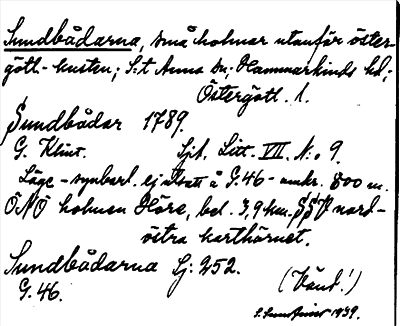 Sundbådarna, små holmar utanför öster-
götl.-kusten; S:t Anna sn; Hammarkinds hd;
Östergötl. l.
Sundbådar 1789.
G. Klint. Sjk. Litt. VII. N:o 9.
Läge - synbarl. ej utsatt å G.46 - omkr. 800 m.
ÖNÖ holmen Höre, bel. 3,9 km. SSV nord-
östra karthörnet.
Sundbådarna Lj: 252.
G. 46. (Vänd!)
1939.